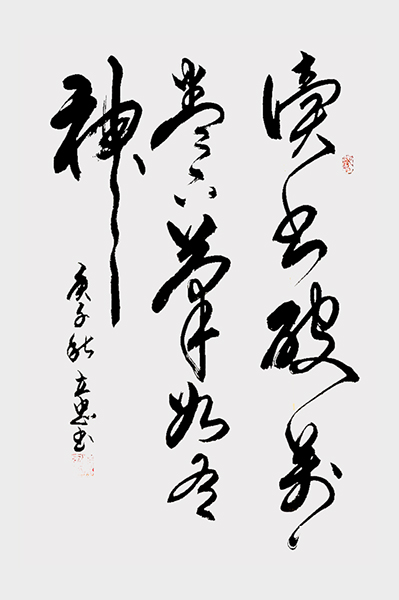 讀書破萬
卷下筆如有
神
庚子秋 立忠書